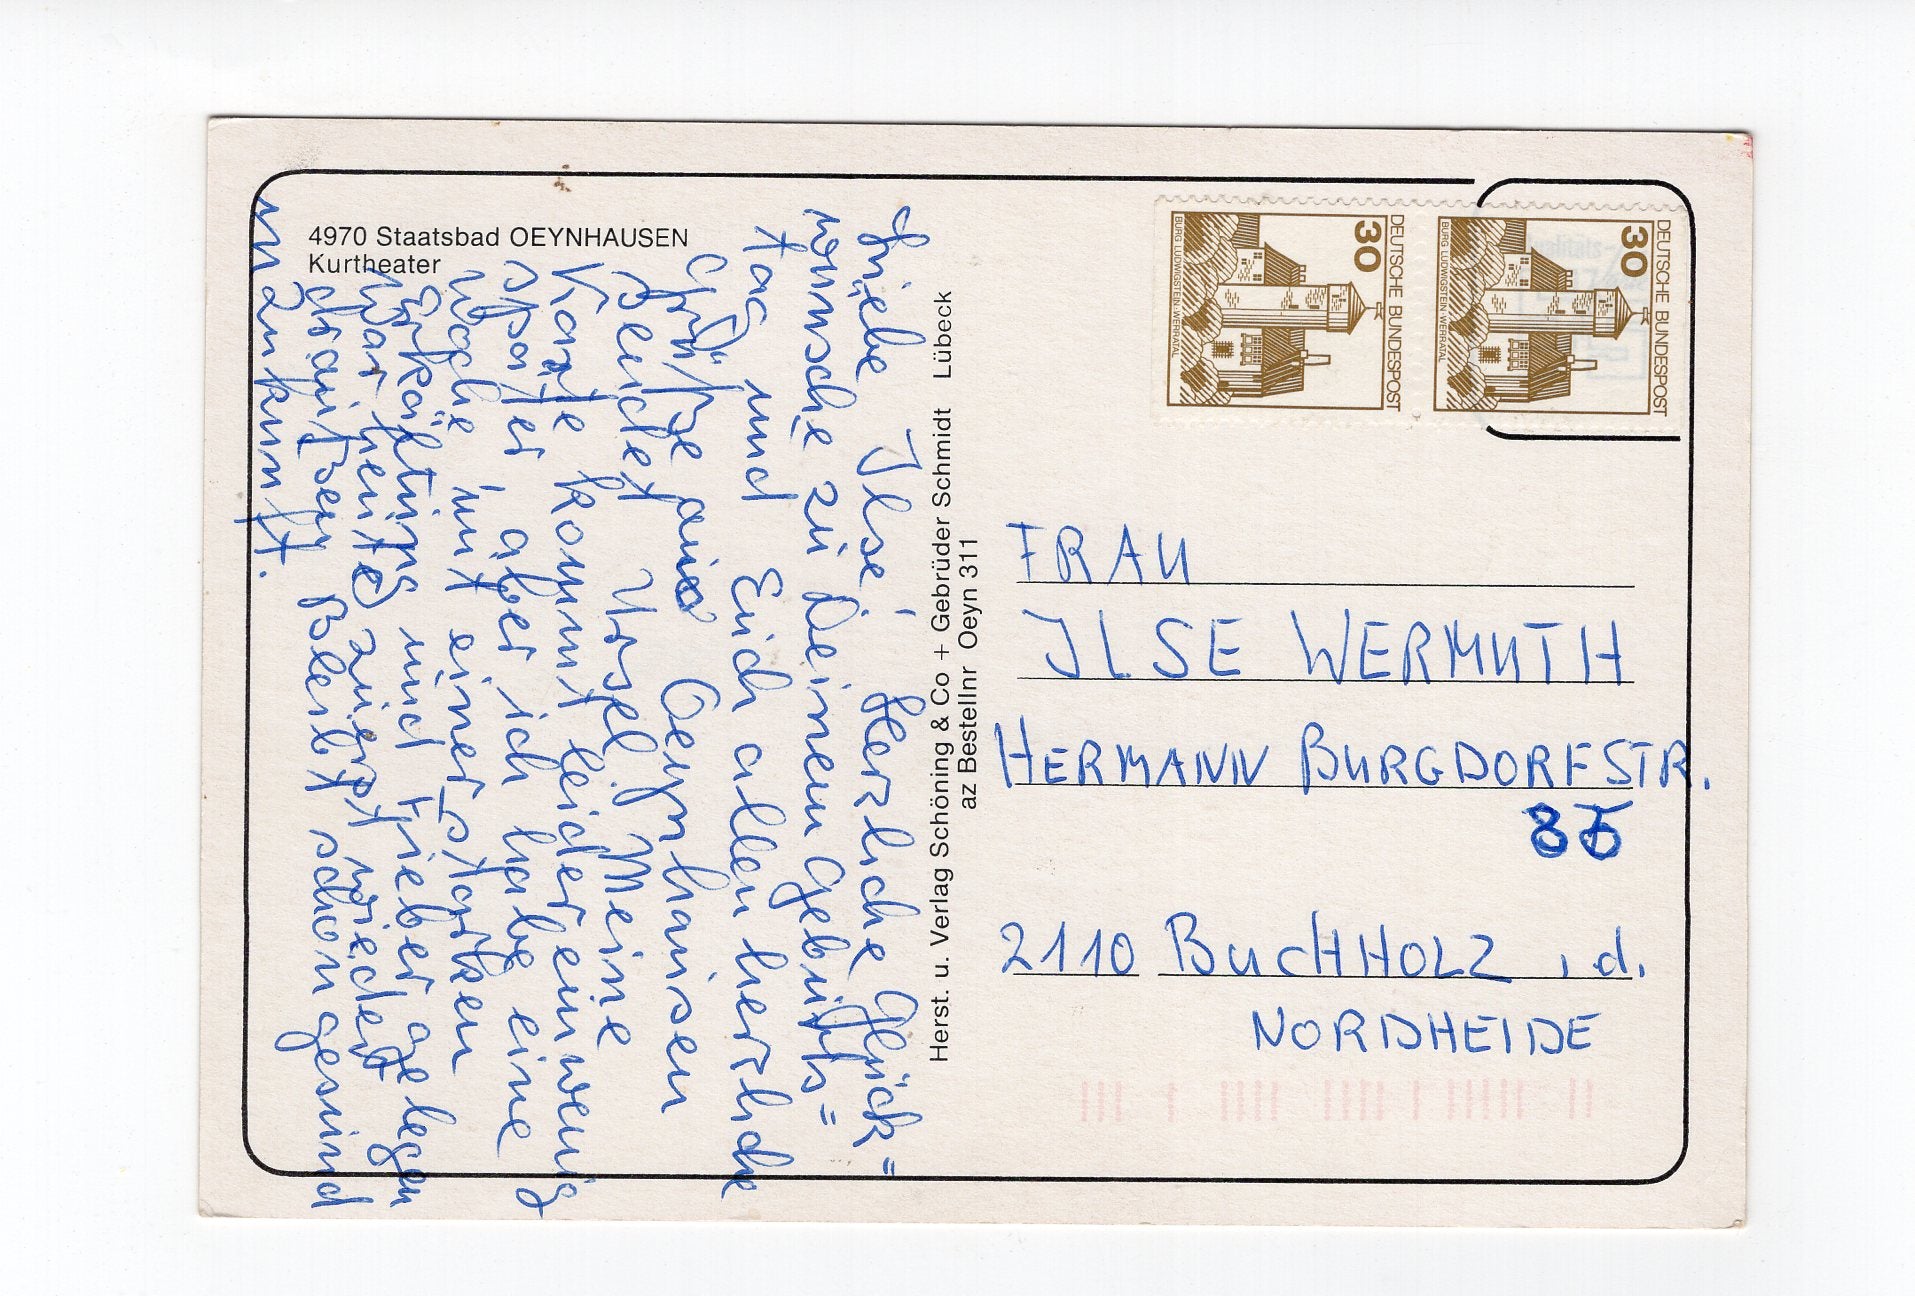 4970 Staatsbad OEYNHAUSEN
Kurtheater
Liebe Ilse! Herzliche Glück=
wünsche zu Deinem Geburts=
tag und Euch allen herzliche
Grüße aus Oeynhausen
sendet Ursel. Meine
Karte kommt leider ein wenig
später aber ich habe eine
Woche mit einer starken
Erkältung und Fieber gelegen
war heute zuerst wieder
draußen Bleibt schön gesund
in Zukunft.
Herst. u. Verlag Schöning & Co + Gebrüder Schmidt Lübeck
az Bestellnr Oeyn 311
30
DEUTSCHE BUNDESPOST
BURG LUDWIGSTEIN WERRATAL
30
DEUTSCHE BUNDESPOST
BURG LUDWIGSTEIN WERRATAL
FRAU
ILSE WERMUTH
HERMANN BURGDORFSTR.
2110 BUCHHOLZ i.d.
NORDHEIDE